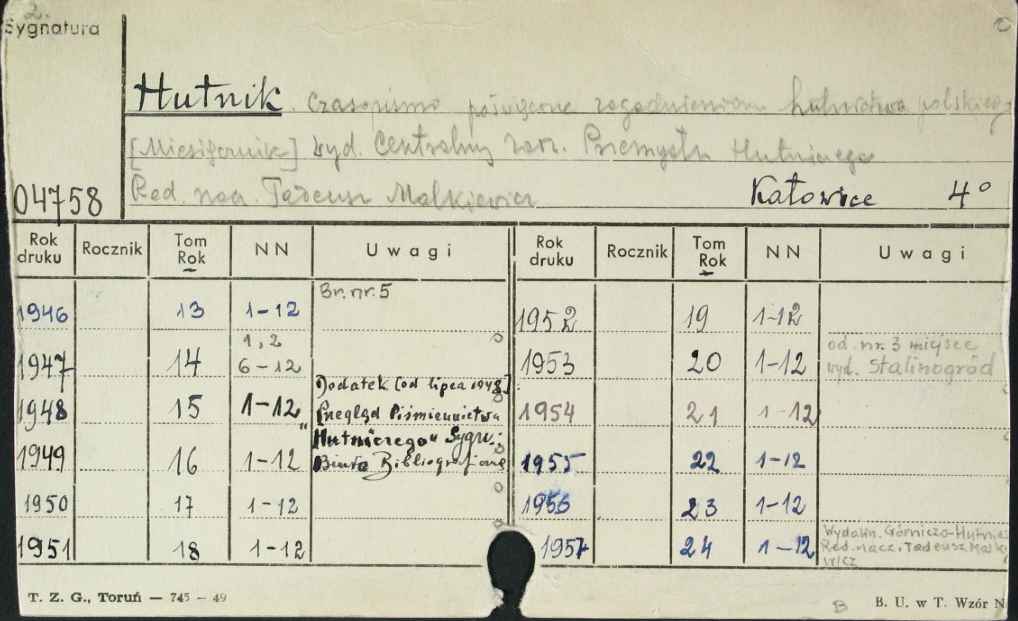 2.
Sygnatura
Hutnik. Czasopismo poświęcone zagadnieniom hutnictwa polskiego
[Miesięcznik] Wyd. Centralny Zarz. Przemysłu Hutniczego
04758 Red. nacz. Tadeusz Malkiewicz Katowice 4°
Rok druku Rocznik Tom Rok NN Uwagi Rok druku Rocznik Tom Rok NN Uwagi
1946 13 1-12 Br. nr. 5 1952 19 1-12
1947 14 1, 2 6-12 1953 20 1-12 od. nr. 3 miejsce wyd. Stalinogród
1948 15 1-12 Dodatek [od lipca 1948] "Przegląd Piśmiennictwa 1954 21 1-12
1949 16 1-12 Hutniczego" Sygn.: Biuro Bibliograficzne 1955 22 1-12
1950 17 1-12 1956 23 1-12
1951 18 1-12 1957 24 1-12 Wydawn. Górniczo-Hutnicz Red. nacz. Tadeusz Malkiewicz
T. Z. G., Toruń — 745 - 49 B B. U. w T. Wzór N